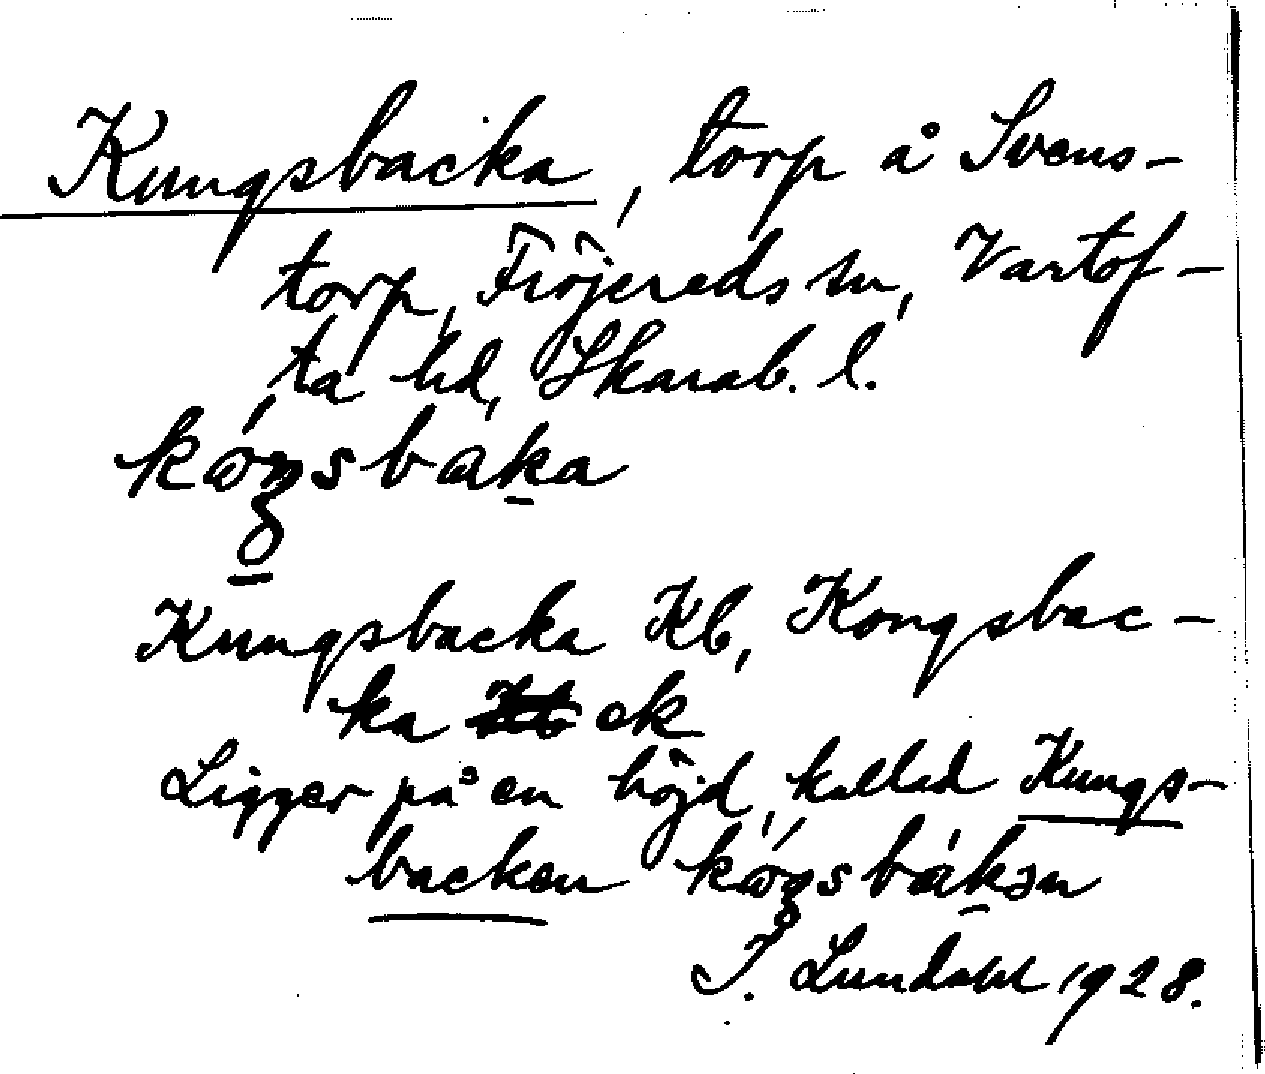 Kungsbacka, torp å Svens-
torp, Fröjereds sn, Vartof-
ta hd, Skarab. l.
Kungsbacka Kb, Kongsbac-
ka ek
Ligger på en höjd, kallad Kungs-
backen
I. Lundahl 1928.